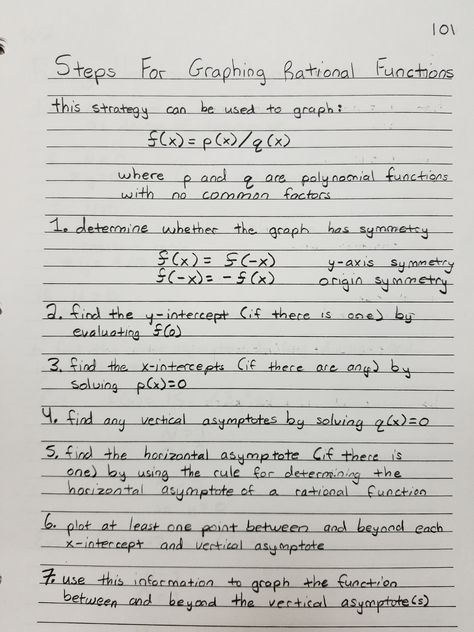 101
Steps For Graphing Rational Functions
this strategy can be used to graph:
f(x) = p(x)/q(x)
where p and q are polynomial functions
with no common factors
1. determine whether the graph has symmetry
f(x) = f(-x) y-axis symmetry
f(-x) = -f(x) origin symmetry
2. find the y-intercept (if there is one) by
evaluating f(0)
3. find the x-intercepts (if there are any) by
solving p(x)=0
4. find any vertical asymptotes by solving q(x)=0
5. find the horizontal asymptote (if there is
one) by using the rule for determining the
horizontal asymptote of a rational function
6. plot at least one point between and beyond each
x-intercept and vertical asymptote
7. use this information to graph the function
between and beyond the vertical asymptote(s)